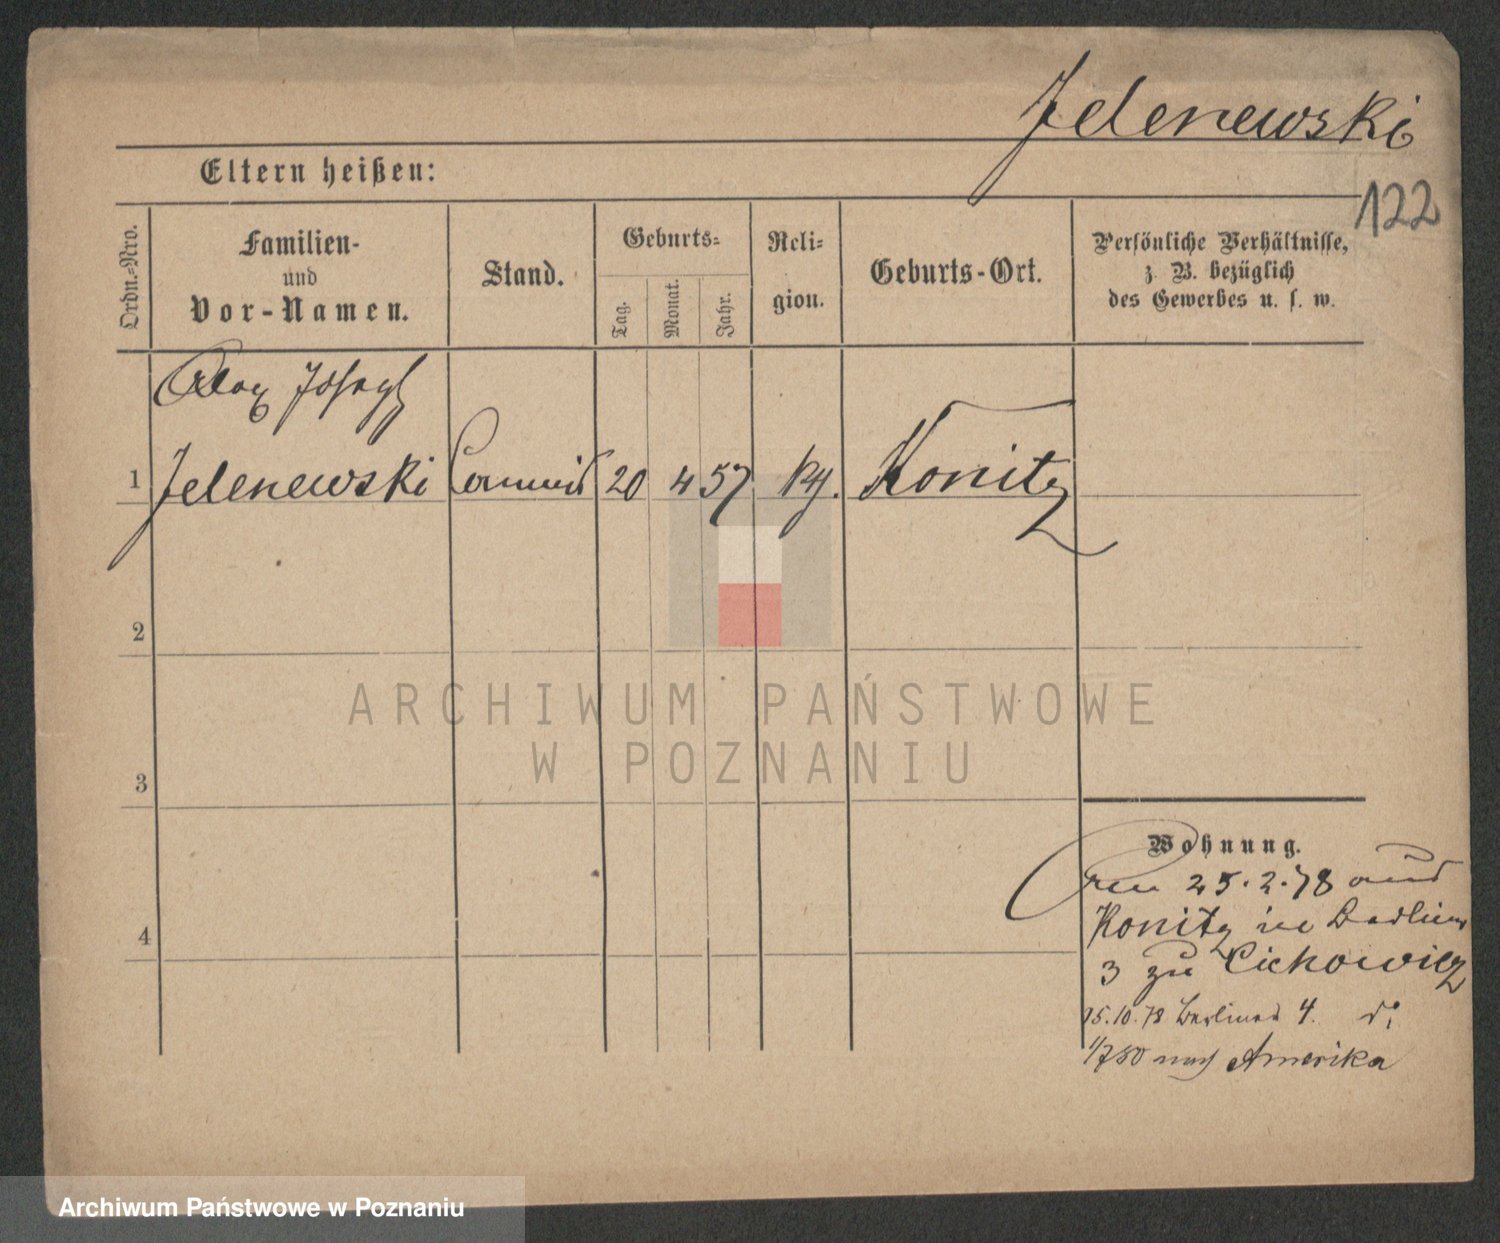 Jelenewski
122
Eltern heißen:
Ordn.-Nro.
Familien-
und
Vor-Namen.
Stand.
Geburts-
Tag.
Monat.
Jahr.
Reli-
gion.
Geburts-Ort.
Persönliche Verhältnisse,
z. B. bezüglich
des Gewerbes u. s. w.
Joseph
1 Jelenewski Commis 20 4 57 Konitz
2
3
4
Wohnung.
25.2.78 aus
Konitz in Berliner
3 zu Cichowicz
15.10.78 Berliner 4.
1/7 80 nach Amerika
ARCHIWUM PAŃSTWOWE
W POZNANIU
Archiwum Państwowe w Poznaniu